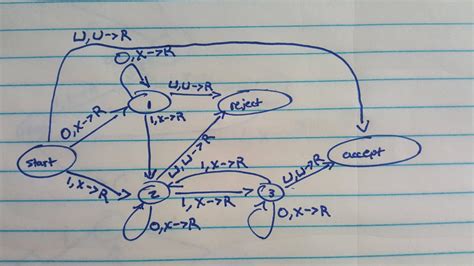 ⊔,⊔→R
0,x→R
1
⊔,⊔→R
reject
0,x→R
1,x→R
start
⊔,⊔→R
accept
1,x→R
1,x→R
⊔,⊔→R
2
1,x→R
3
0,x→R
0,x→R